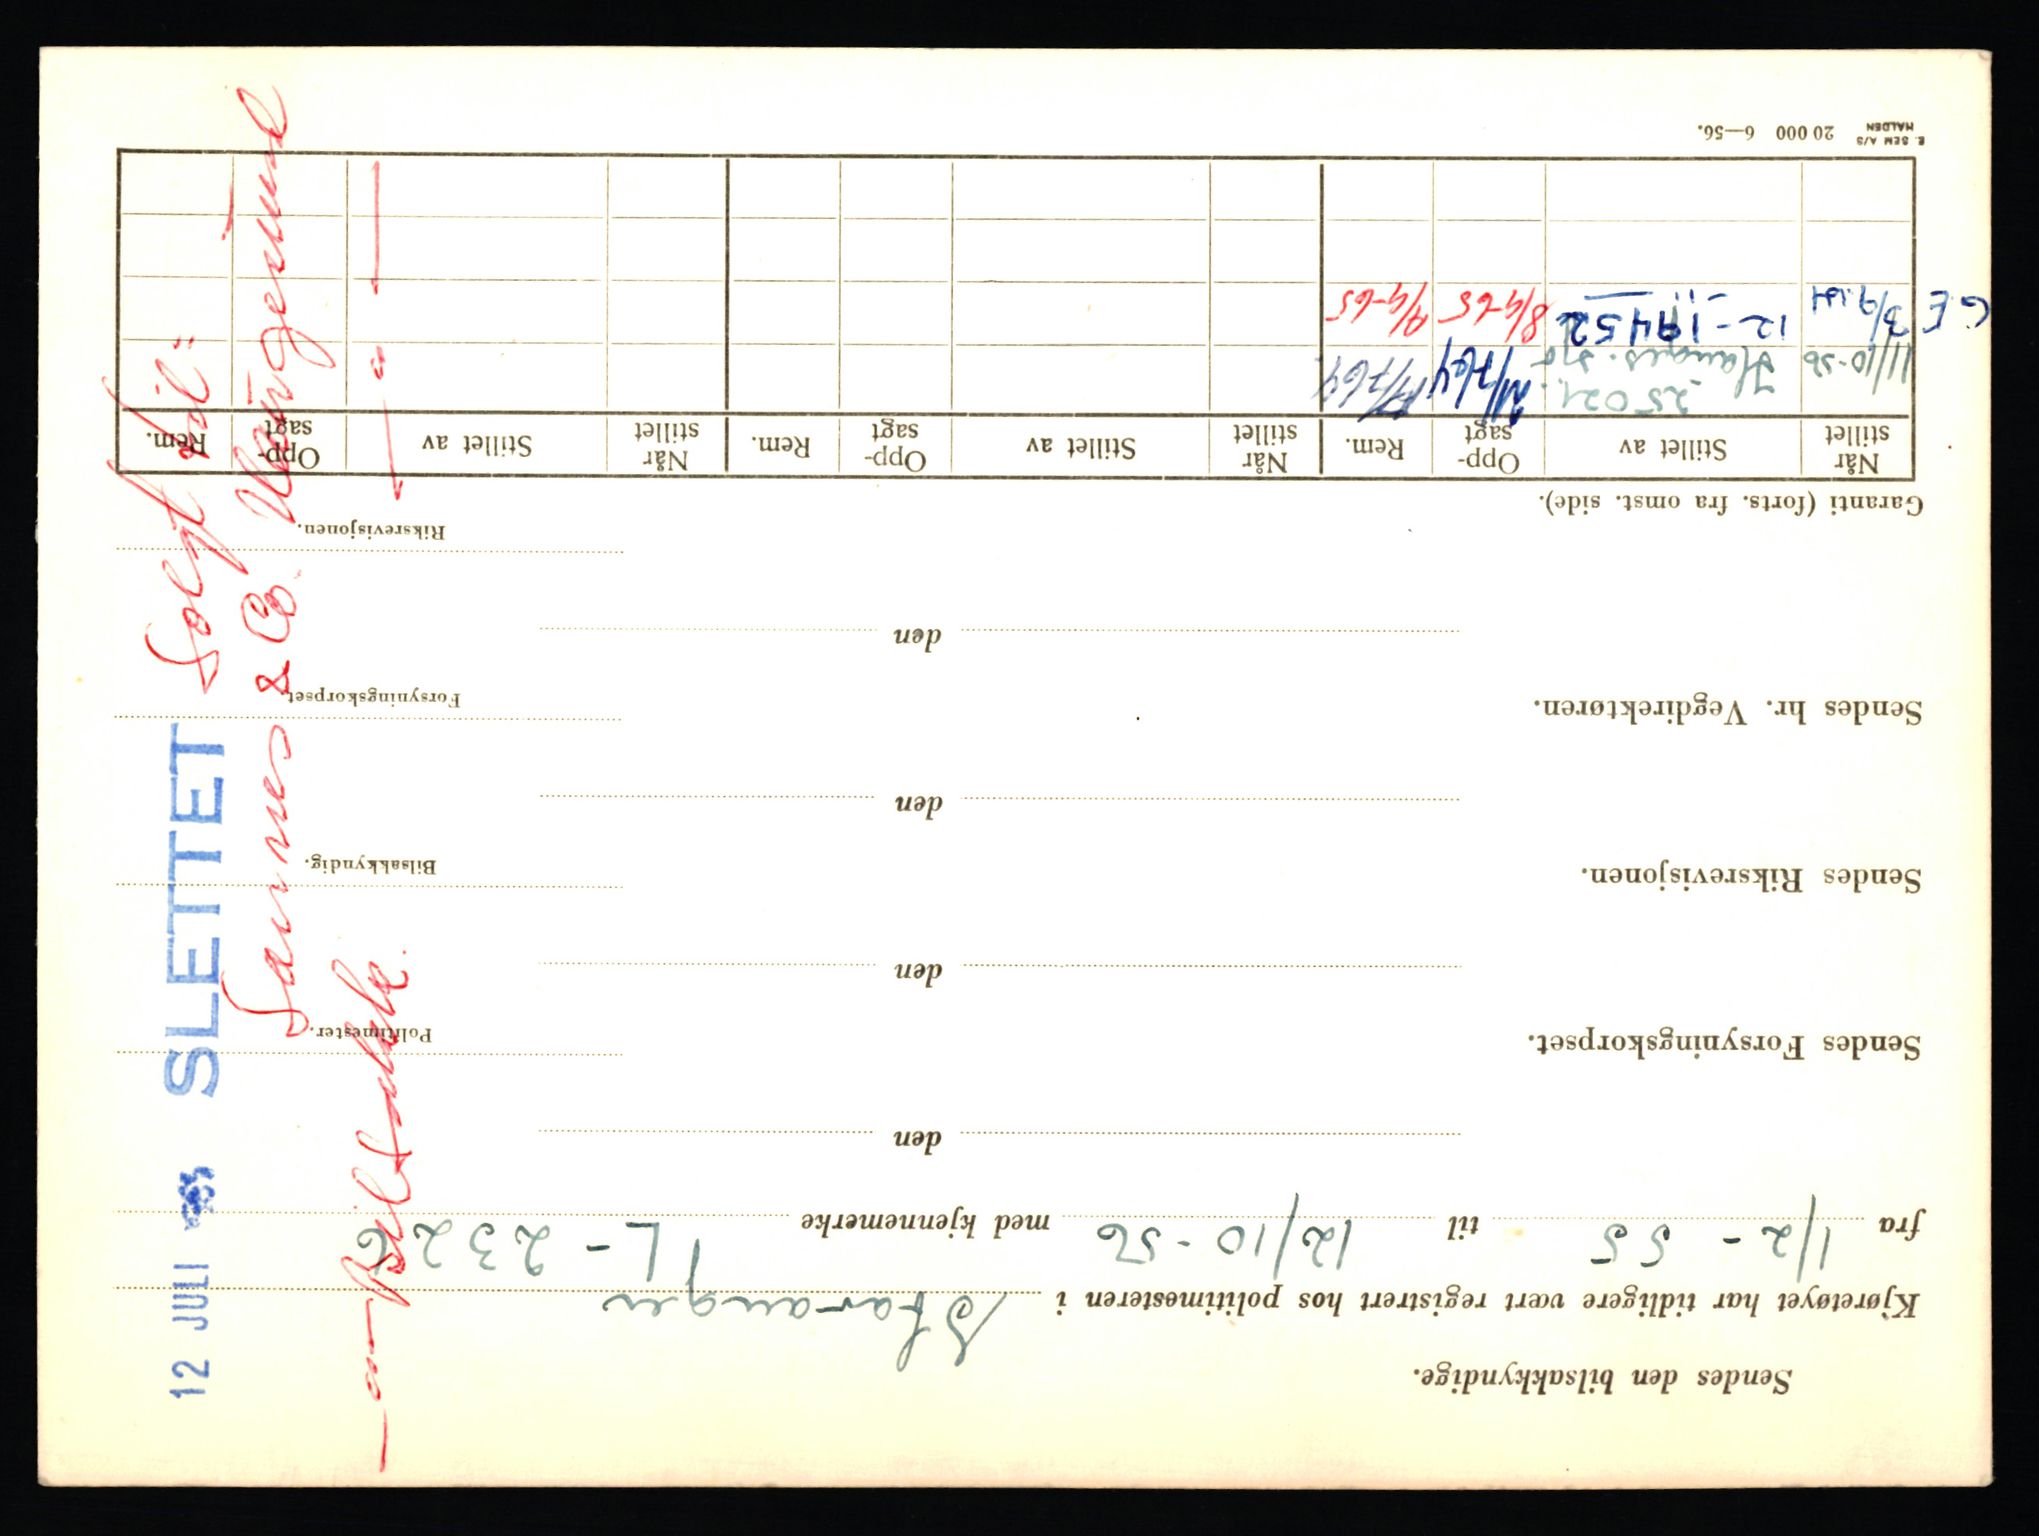 Sendes den bilsakkyndige.
Kjøretøyet har tidligere vært registrert hos politimesteren i Stavanger
fra 1/2 - 55 til 12/10-56 med kjennemerke L - 2326
den
Politimester.
Sendes Forsyningskorpset.
den
Bilsakkyndig.
Sendes Riksrevisjonen.
den
Forsyningskorpset.
Sendes hr. Vegdirektøren.
den
Riksrevisjonen.
Garanti (forts. fra omst. side).
Når stillet Stillet av Opp- sagt Rem. Når stillet Stillet av Opp- sagt Rem. Når stillet Stillet av Opp- sagt Rem.
11/10-56 25021 /7 64 /7 64
G.E 3/9. 12-19452 8/4-65 /4-65
E. SEM A/S HALDEN 20 000 6—56.
12 JULI SLETTET Solgt til:
Sannes & Co.
Biltilsluk.